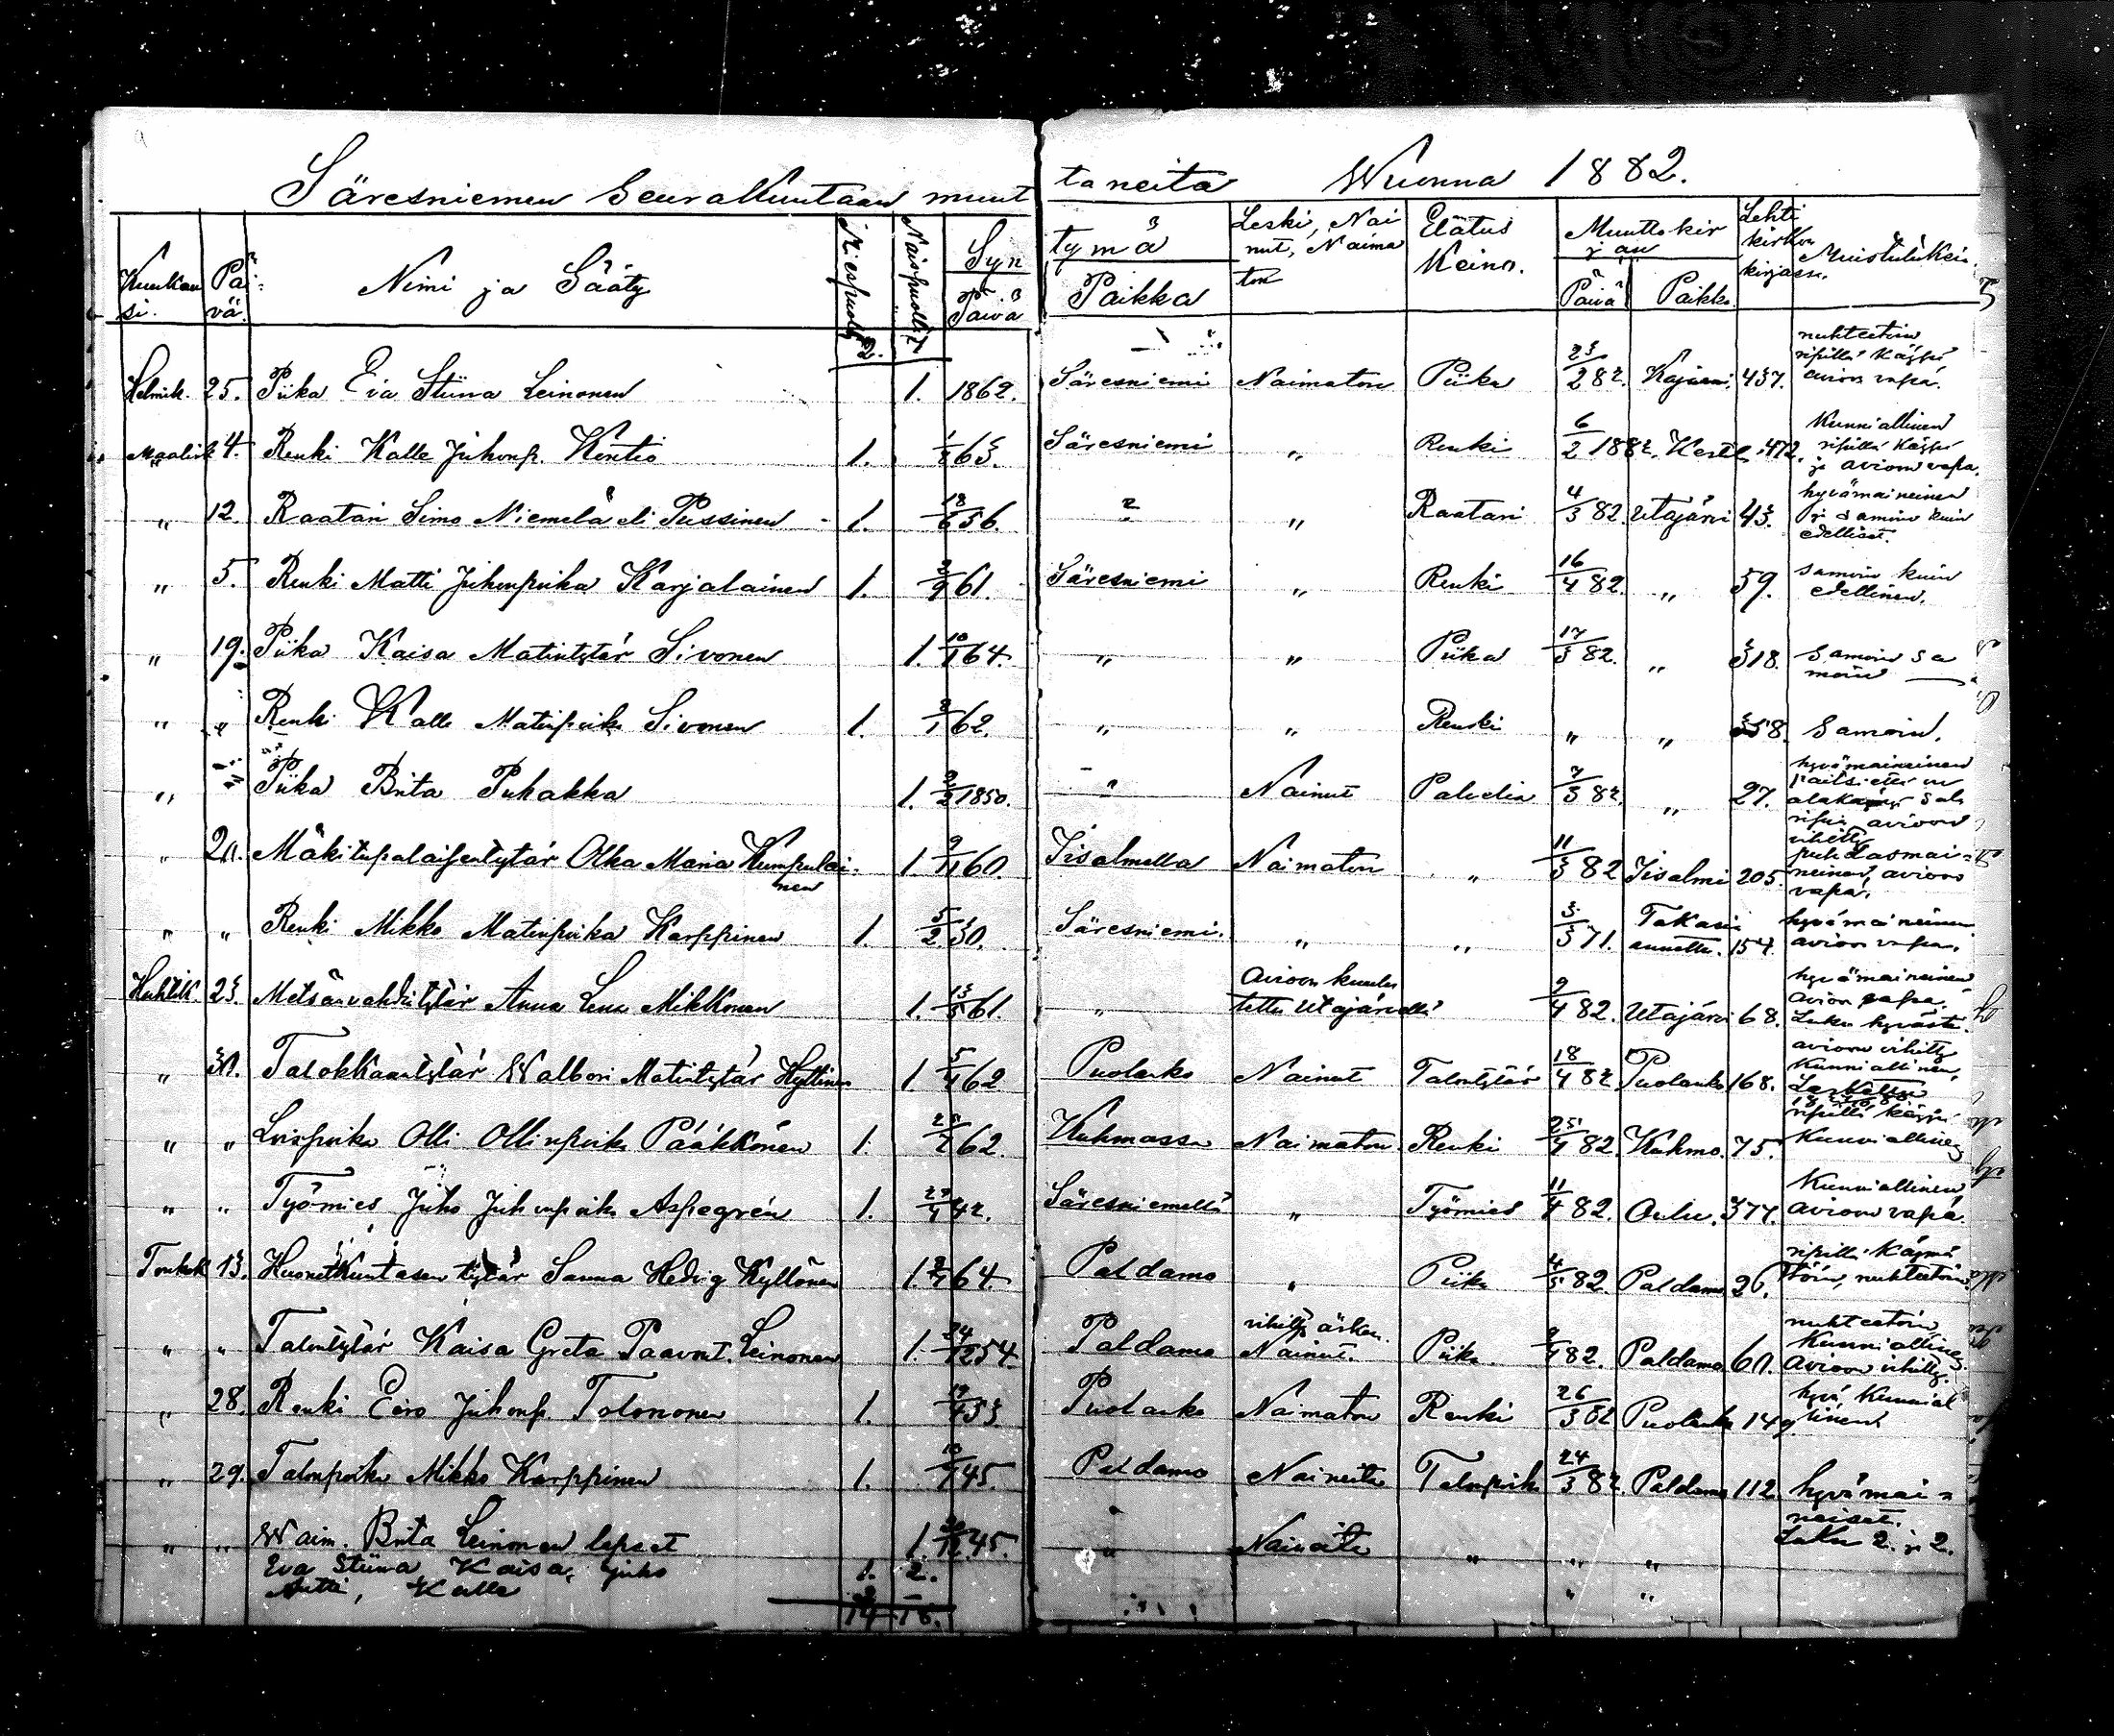 Säresniemen Seurakuntaan muut taneita Wuonna 1882.
Kuukausi. Päivä. Nimi ja Sääty Miespuolia Naispuolia Syn tymä Leski, Nainut, Naimaton Elatus Keino. Muuttokirjan Lehti kirkon kirjassa. Muistutuksia.
Päivä Paikka Päivä Paikka
2.
Helmik. 25. Piika Eva Stiina Leinonen 1. 1862. Säresniemi Naimaton Piika 23/2 82. Kajaani 437. nuhteetoin ripillä käypi avioon vapa.
Maalisk 4. Renki Kalle Juhonp. Kontio 1. 63. Säresniemi " Renki 6/2 1882. Kestl. 472. Kunniallinen ripillä käypi ja avioon vapa.
" 12. Raatari Simo Niemelä eli Pussinen 1. 18/6 56. " " Raatari 4/3 82. Utajärvi 43. hyvämaineinen ja samoin kuin edelliset.
" 5. Renki Matti Juhonpoika Karjalainen 1. 61. Säresniemi " Renki 16/4 82. " 59. samoin kuin edellinen.
" 19. Piika Kaisa Matintytär Sivonen 1. 10/1 64. " " Piika 17/3 82. " 318. Samoin samoin
" " Renki Kalle Matinpoika Sivonen 1. 62. " " Renki " " 58. Samoin.
" " Piika Brita Puhakka 1. 1850. " Nainut 7/3 82. " 27. hyvämaineinen avioon vihitty
" 20. Mäkitupalaisentytär Maria Kumpulainen 1. 9/11 60. Iisalmella Naimaton " 11/3 82 Iisalmi 205. puhdasmaineinen, avioon vapa.
" " Renki Mikko Matinpoika Karppinen 1. 5/2 30. Säresniemi. " " 3/3 71. Takaisin annettu. 154. hyvämaineinen avioon vapa.
Huhtik. 23. Metsänvahdintytär Anna Lena Mikkonen 1. 13/5 61. " Avioon kuulutettu Utajärvellä 9/4 82. Utajärvi 68. hyvämaineinen avioon vapa. Lukee hyvästi.
" 30. Talokkaantytär Walbori Matintytär Hyttinen 1. 5/4 62 Puolanko Nainut Talontytär 18/4 82. Puolanko 168. avioon vihitty Kunniallinen,
" " Loispoika Olli Ollinpoika Pääkkönen 1. 62. Kuhmossa Naimaton Renki 25/4 82. Kuhmo. 75. ripillä käypi Kunniallinen
" " Työmies Juho Juhonpoika Aspegrén 1. 42. Säresniemellä " Työmies 11/4 82. Oulu. 377. Kunniallinen avioon vapa.
Toukok 13. Huonekuntasen tytär Sanna Hedvig Kyllönen 1. 64. Paldamo " Piika 4/5 82. Paldamo 26. ripillä käymätöin, nuhteetoin
" " Talontytär Kaisa Greta Paavont. Leinonen 1. 24/12 54. Paldamo vihitty äsken. Nainut. Piika 9/4 82. Paldamo 60. nuhteetoin Kunniallinen avioon vihitty.
" 28. Renki Eero Juhonp. Tolonen 1. Puolanko Naimaton Renki 26/3 82 Puolanko 149. hyvä Kunniallinen
" 29. Talonpoika Mikko Karppinen 1. 45. Paldamo Naineita Talonpoika 24/3 82. Paldamo 112. hyvämai=neiset.
" " Waim. Brita Leinonen lapset 1. 45. " Naineita " " " Lukee 2. ja 2.
Eva Stiina Kaisa, Juho 1. 2.
Antti, Kalle " "